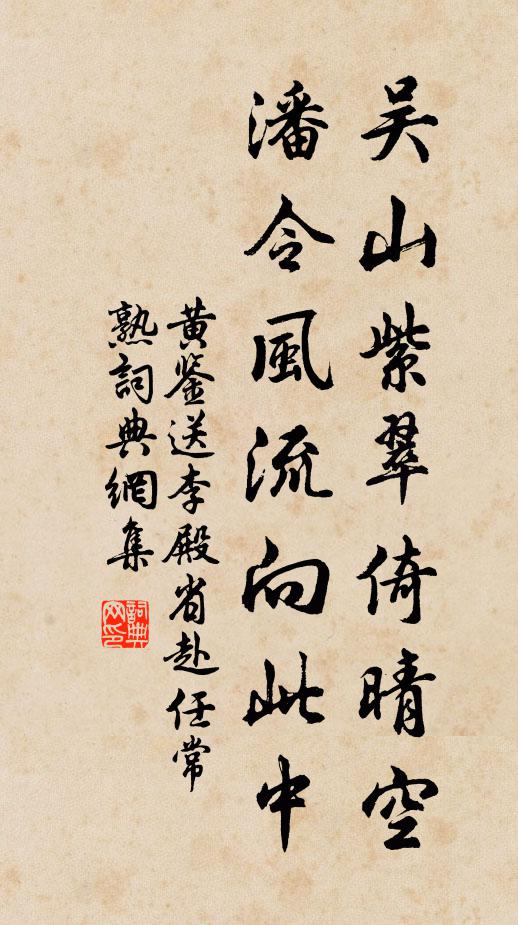 吴山紫翠倚晴空
潘令風流向此中
黄鉴送李殿省赴任常
熟詞典網集
詞典
网印